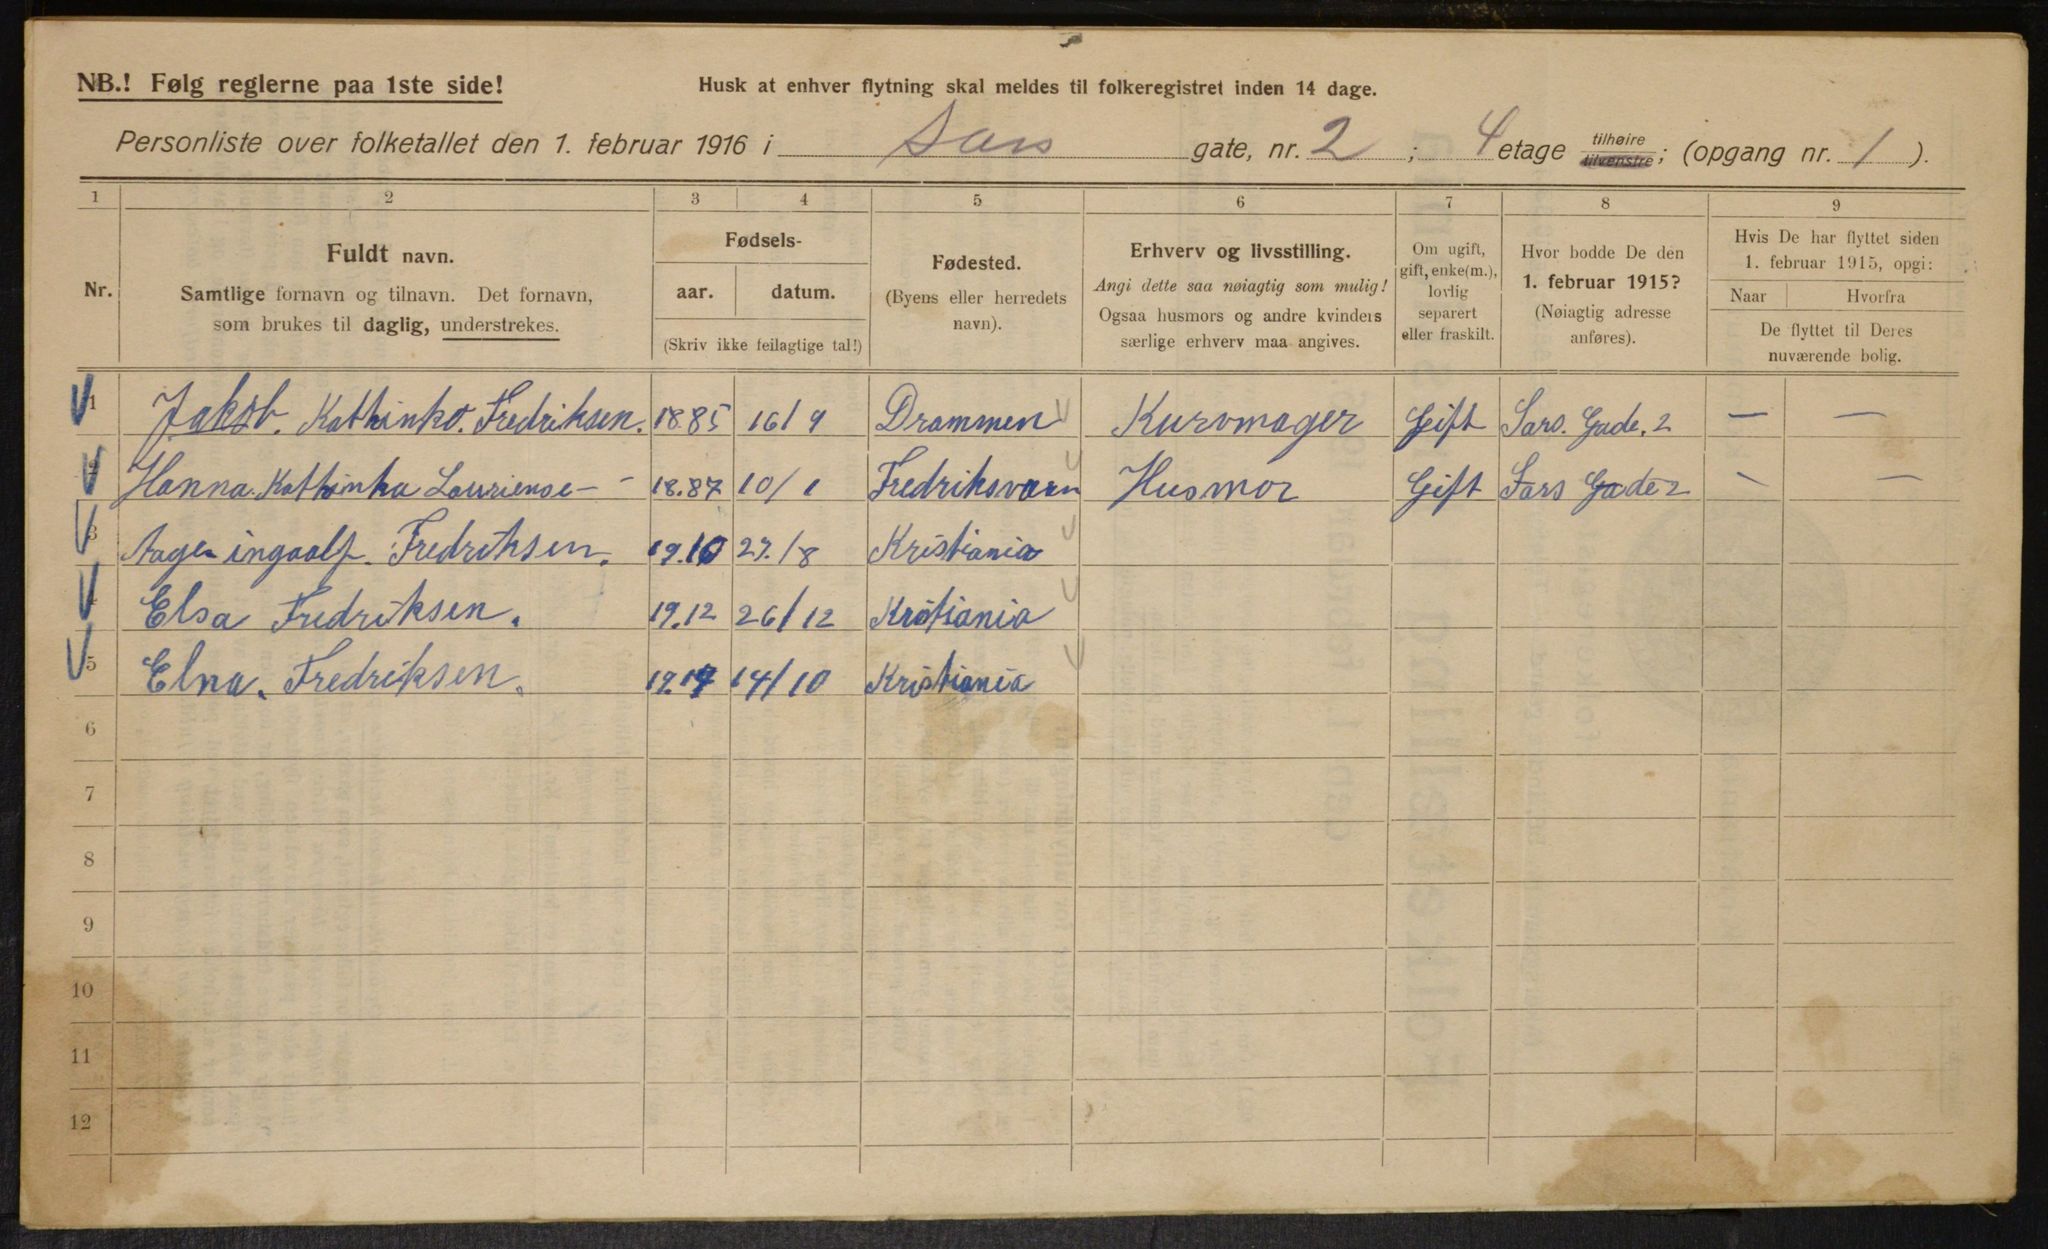 NB.! Følg reglerne paa 1ste side! Husk at enhver flytning skal meldes til folkeregistret inden 14 dage.
Personliste over folketallet den 1. februar 1916 i Sars gate, nr. 2 ; 4 etage tilhøire tilvenstre; (opgang nr. 1 ).
1 2 3 4 5 6 7 8 9
Nr.
Fuldt navn.
Samtlige fornavn og tilnavn. Det fornavn,
som brukes til daglig, understrekes.
Fødsels-
aar. datum.
(Skriv ikke feilagtige tal!)
Fødested.
(Byens eller herredets
navn).
Erhverv og livsstilling.
Angi dette saa nøiagtig som mulig!
Ogsaa husmors og andre kvinders
særlige erhverv maa angives.
Om ugift,
gift, enke(m.),
lovlig
separert
eller fraskilt.
Hvor bodde De den
1. februar 1915?
(Nøiagtig adresse
anføres).
Hvis De har flyttet siden
1. februar 1915, opgi:
Naar Hvorfra
De flyttet til Deres
nuværende bolig.
1 Jakob. Kathinko. Fredriksen. 18.85 16/9 Drammen Kurvmager Gift Sars. Gade. 2 — —
2 Hanna. Kathinka 18.87 10/1 Fredriksværn Husmor Gift Sars Gade 2 — —
3 Aage ingoalf. Fredriksen. 19.10 27./8 Kristiania
4 Elsa Fredriksen. 19.12 26/12 Kristiania
5 Elna. Fredriksen. 14/10 Kristiania
6
7
8
9
10
11
12